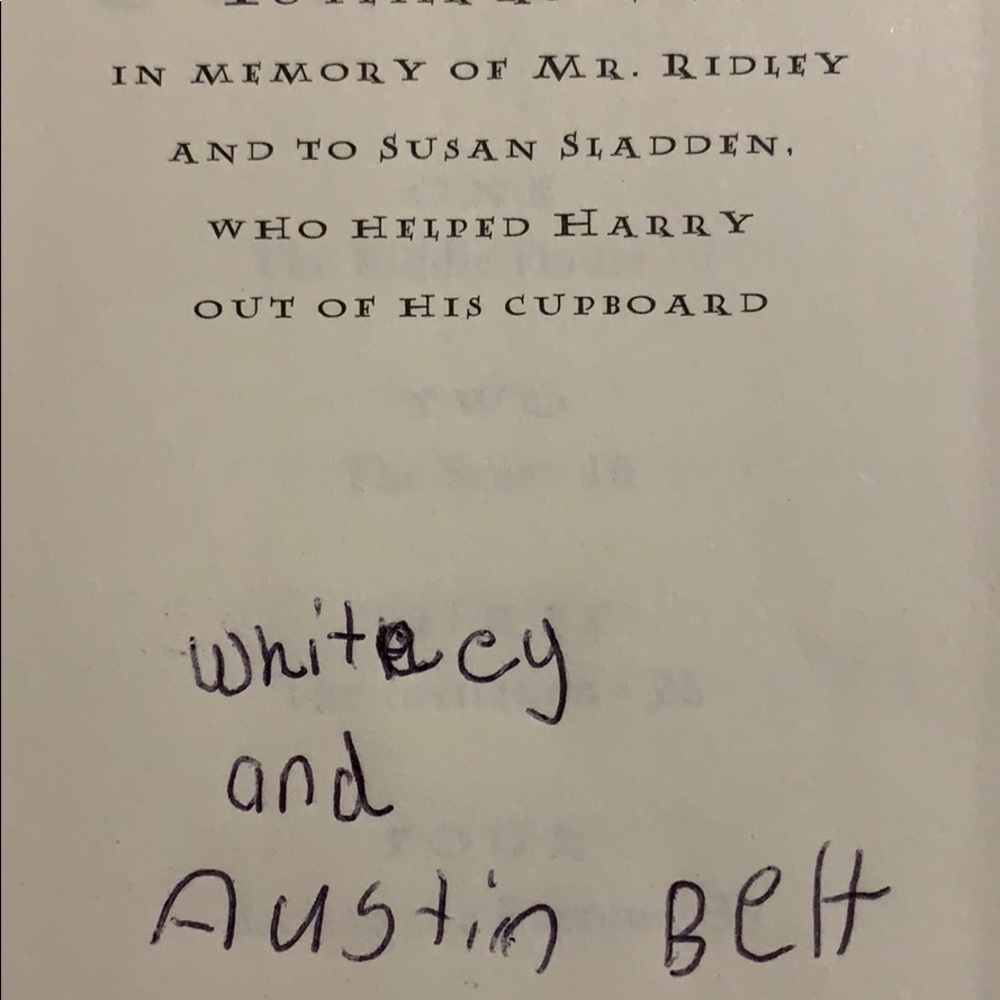 IN MEMORY OF MR. RIDLEY
AND TO SUSAN SLADDEN,
WHO HELPED HARRY
OUT OF HIS CUPBOARD
and
Austin Belt